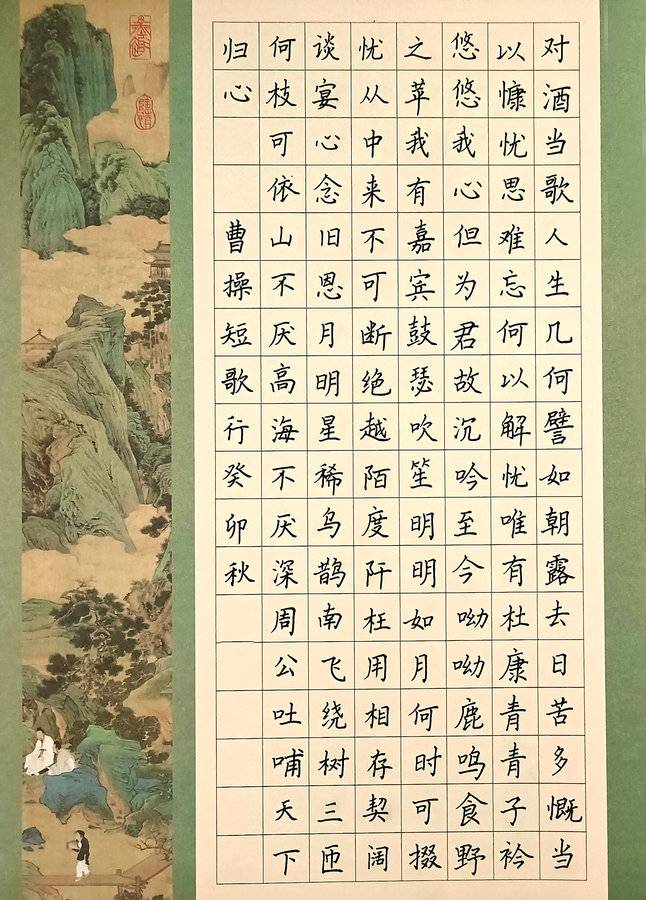 对酒当歌人生几何譬如朝露去日苦多慨当
以慷忧思难忘何以解忧唯有杜康青青子衿
悠悠我心但为君故沉吟至今呦呦鹿鸣食野
之苹我有嘉宾鼓瑟吹笙明明如月何时可掇
忧从中来不可断绝越陌度阡枉用相存契阔
谈宴心念旧恩月明星稀乌鹊南飞绕树三匝
何枝可依山不厌高海不厌深周公吐哺天下
归心 曹操短歌行癸卯秋